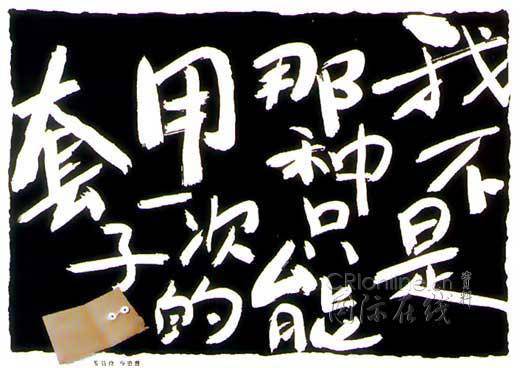 我不是
那种只能
用一次的
套子
CRIonline.cn
国际在线
资料